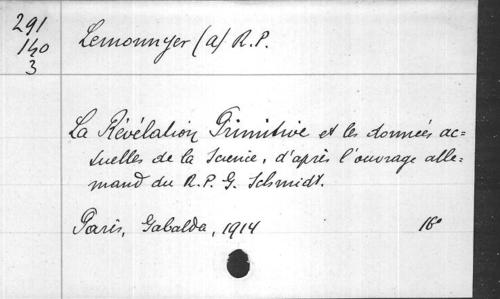 291
140
3
Lemonnyer (a) R.P.
La Révélation Primitive et les données ac=
tuelles de la Science, d'après l'ouvrage alle=
mand du R.P. G. Schmidt.
Paris, Gabalda, 1914 16º